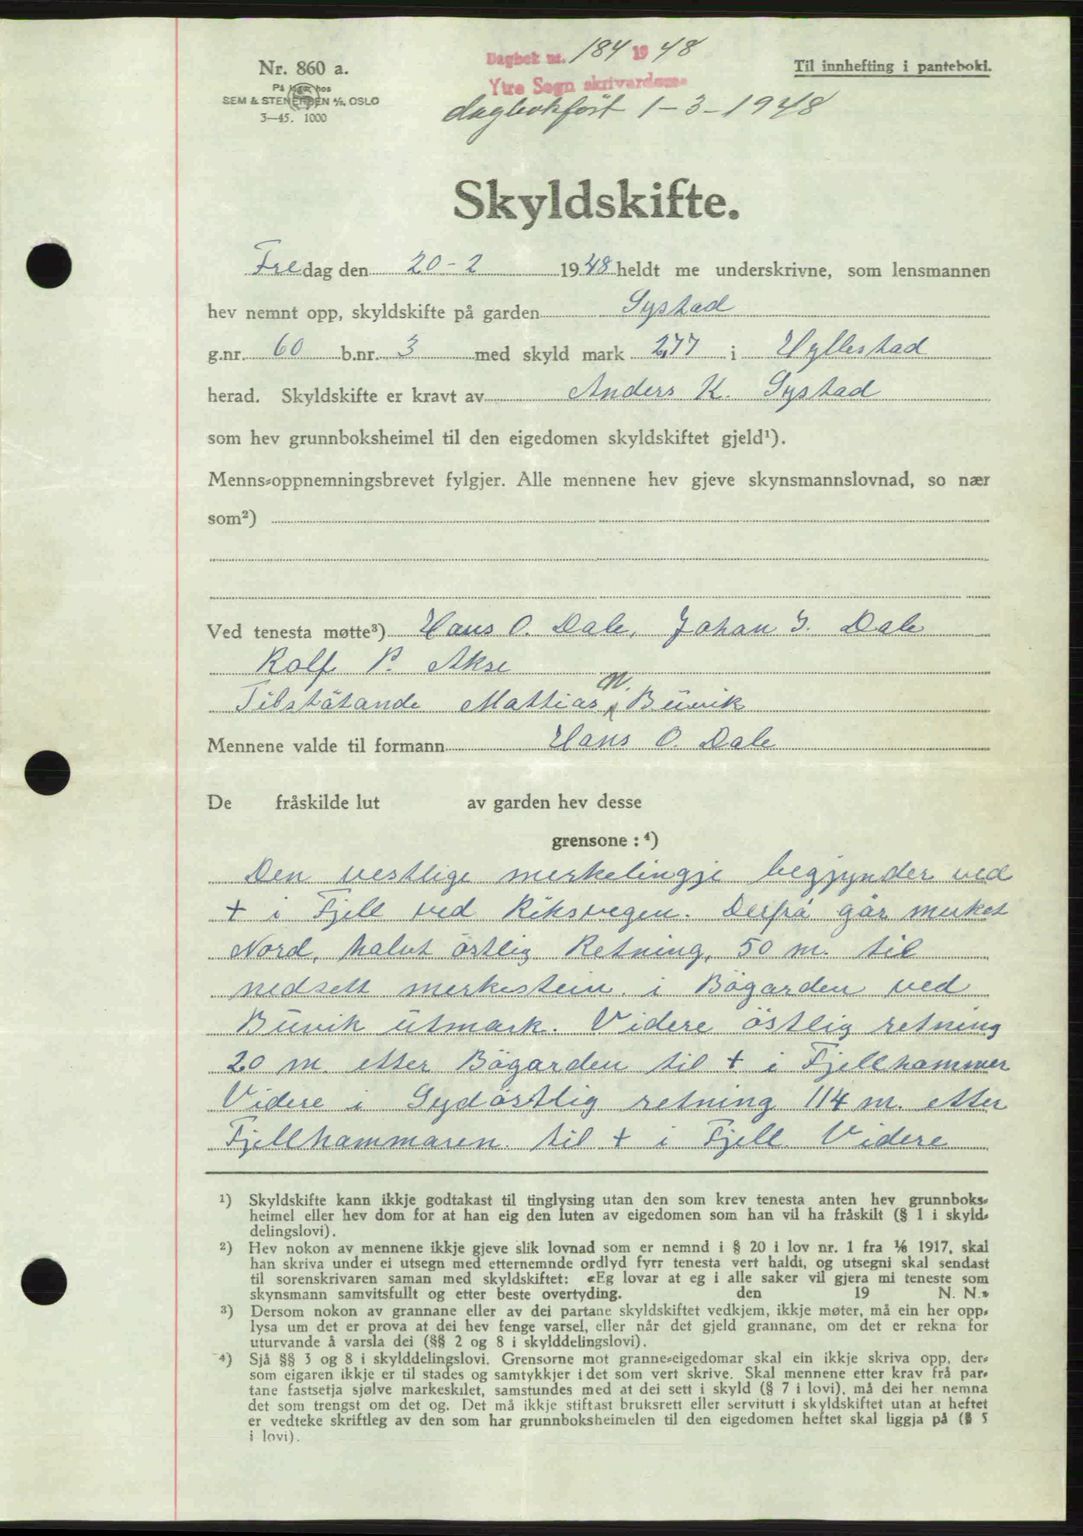 Nr. 860 a.
På lager hos
SEM & STENERSEN A/S, OSLO
3—45. 1000
Dagbok nr. 184 1948
Ytre Sogn skrivardøme
dagbokført 1-3-1948
Til innhefting i panteboki.
Skyldskifte.
Fredag den 20-2 1948 heldt me underskrivne, som lensmannen
hev nemnt opp, skyldskifte på garden Systad
g.nr. 60 b.nr. 3 med skyld mark 2,77 i Hyllestad
herad. Skyldskifte er kravt av Anders K. Systad
som hev grunnboksheimel til den eigedomen skyldskiftet gjeld¹).
Menns-oppnemningsbrevet fylgjer. Alle mennene hev gjeve skynsmannslovnad, so nær
som²)
Ved tenesta møtte³) Hans O. Dale, Johan I. Dale
Rolf P. Akse
Tilstötande Mattias N. Buvik
Mennene valde til formann Hans O. Dale
De fråskilde lut av garden hev desse
grensone : ⁴)
Den vestlige merkelingje begjynder ved
+ i Fjell ved Riksvegen. Derfrå går merket
Nord, halvt östlig Retning, 50 m. til
nedsett merkestein i Bögarden ved
Buvik utmark. Videre östlig retning
20 m. etter Bögarden til + i Fjellhammer
Videre i Sydöstlig retning 114 m. etter
Fjellhammaren til + i Fjell Videre
¹) Skyldskifte kann ikkje godtakast til tinglysing utan den som krev tenesta anten hev grunnboks-
heimel eller hev dom for at han eig den luten av eigedomen som han vil ha fråskilt (§ 1 i skyld-
delingslovi).
²) Hev nokon av mennene ikkje gjeve slik lovnad som er nemnd i § 20 i lov nr. 1 fra ¹/₆ 1917, skal
han skriva under ei utsegn med etternemnde ordlyd fyrr tenesta vert haldt, og utsegni skal sendast
til sorenskrivaren saman med skyldskiftet: «Eg lovar at eg i alle saker vil gjera mi teneste som
skynsmann samvitsfullt og etter beste overtyding. den 19 N. N.»
³) Dersom nokon av grannane eller av dei partane skyldskiftet vedkjem, ikkje møter, må ein her opp-
lysa um det er prova at dei hev fenge varsel, eller når det gjeld grannane, om det er rekna for
uturvande å varsla dei (§§ 2 og 8 i skylddelingslovi).
⁴) Sjå §§ 3 og 8 i skylddelingslovi. Grensorne mot granne-eigedomar skal ein ikkje skriva opp, der-
som eigaren ikkje er til stades og samtykkjer i det som vert skrive. Skal mennene etter krav frå par-
tane fastsetja sjølve markeskilet, samstundes med at dei sett i skyld (§ 7 i lovi), må dei her nemna
det som trengst om det og. Det må ikkje stiftast bruksrett eller servitutt i skyldskiftet utan at heftet
er vedteke skriftleg av den som har grunnboksheimelen til den eigedomen heftet skal liggja på (§ 5
i lovi).